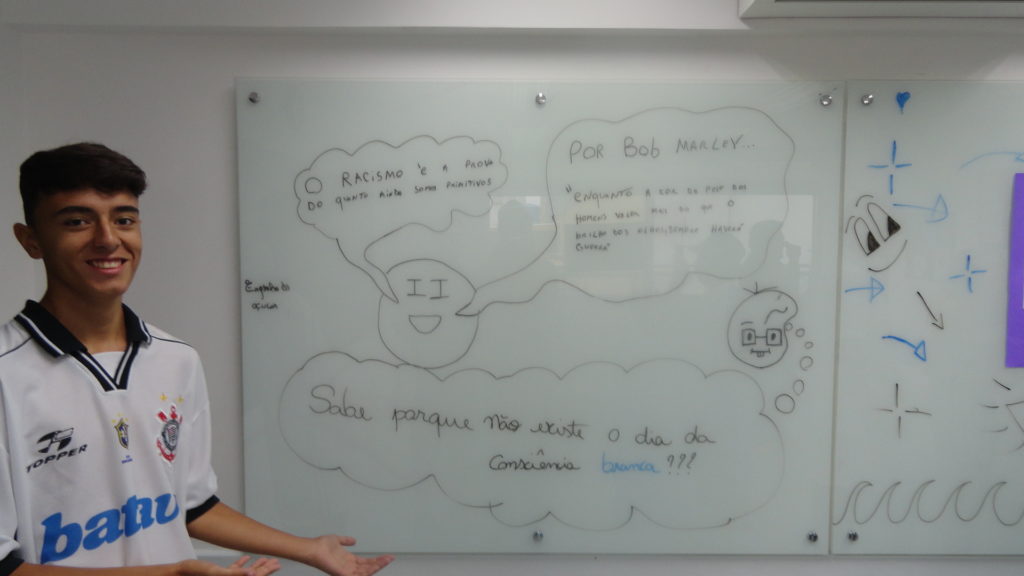 O RACISMO é A PROVA
DO QUANTO AINDA SOMOS PRIMITIVOS
POR BOB MARLEY...
"ENQUANTO A COR DA PELE DOS
HOMENS VALER MAIS DO QUE O
BRILHO DOS OLHOS, SEMPRE HAVERÁ
GUERRA"
Engenho de
açúcar
Sabe porque não existe o dia da
Consciência branca???
TOPPER
batavo